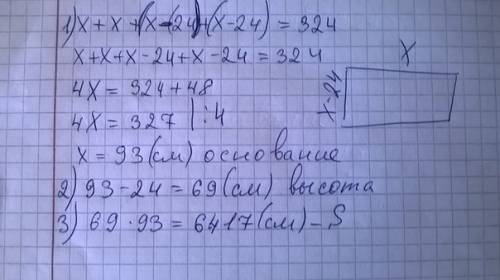 1) x + x + (x - 24) + (x - 24) = 324
x + x + x - 24 + x - 24 = 324
4x = 324 + 48
4x = 327 | : 4
x = 93 (см) основание
2) 93 - 24 = 69 (см) высота
3) 69 · 93 = 6417 (см) - S
x
x-24